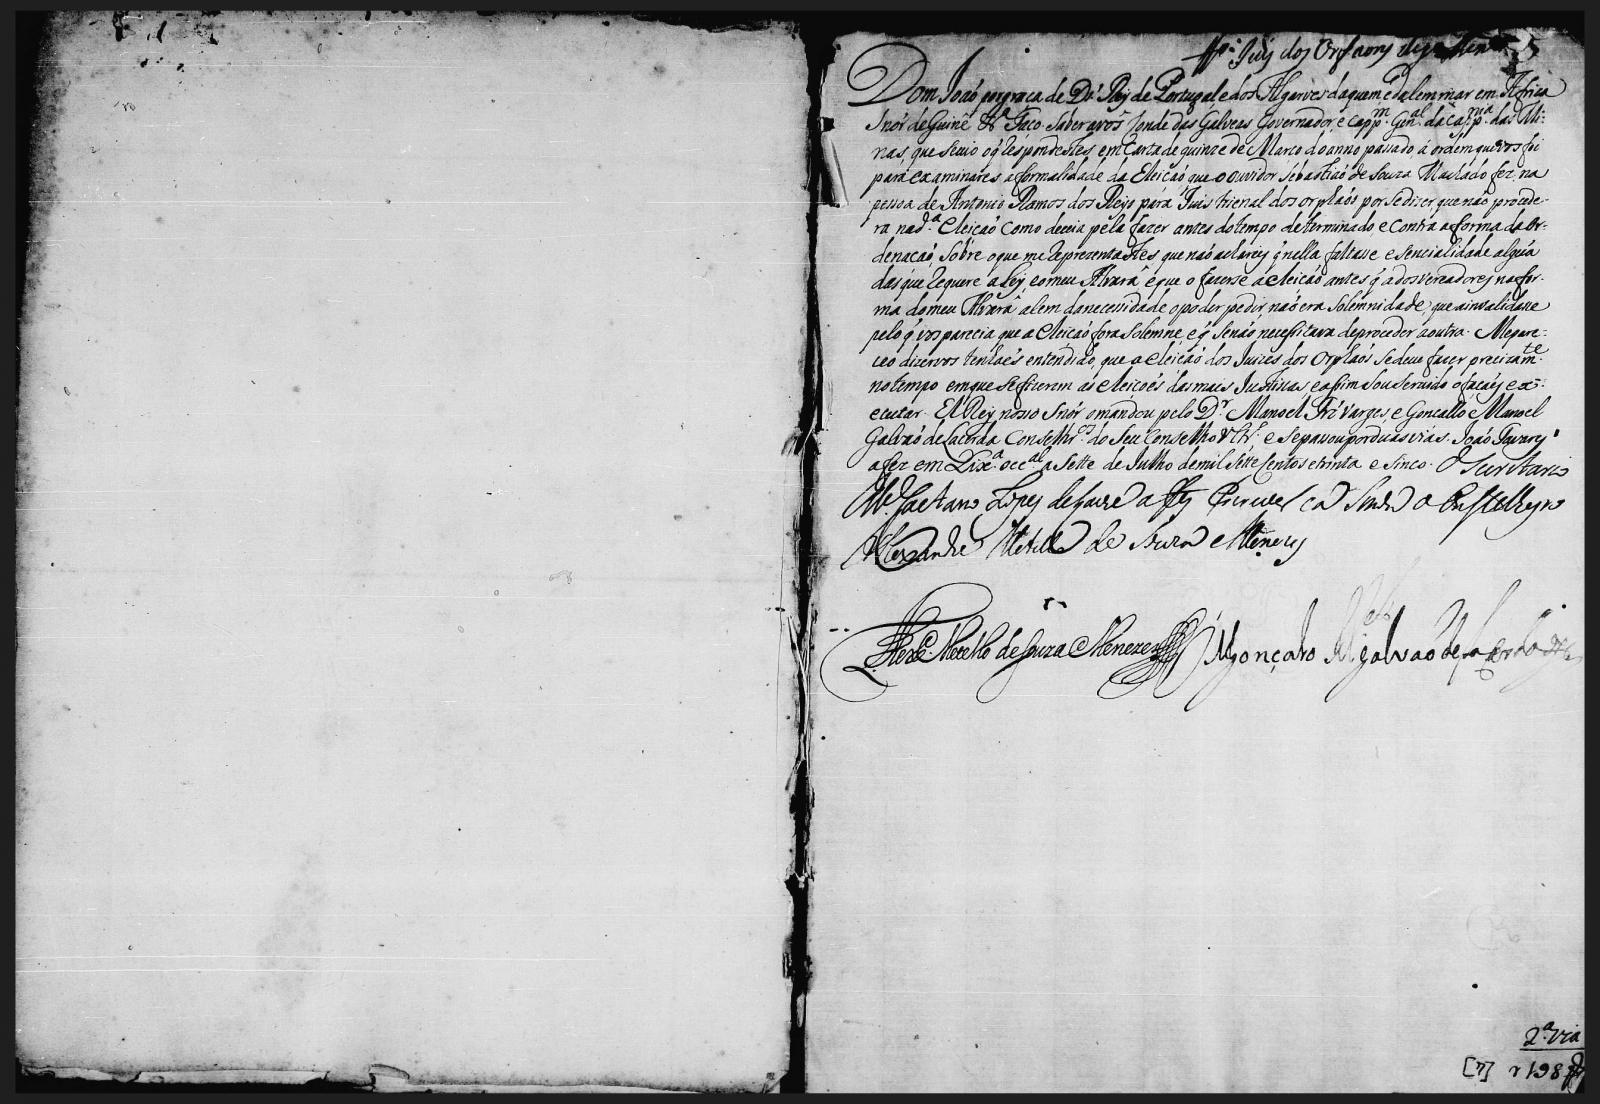 Juis dos Orfaons
Dom João por graça de Ds. Rey de Portugal e dos Algarves daquem e dalem mar em Africa
Snór de Guiné &ca. Faço saber avós Conde das Galveas Governador, e cappm. Genal. da cappnia. das Mi-
nas, que se vio o q̃ respondestes em carta de quinze de Março do anno passado, a ordem que vos foi
para examinares a formalidade da Eleição que o ouvidor Sebastião de Souza Machado fez, na
pessoa de Antonio Ramos dos Reys para Juis trienal dos orphãos por se dizer, que não procede-
ra na da. Eleição como devia pela fazer antes do tempo determinado, e contra a forma da or-
denação, sobre o que me reprezentastes que não achareis q̃ nella faltasse esencialidade algũa
das que requere a Ley, e o meu Alvará e que o fazerse a eleição antes q̃ a dos vereadores na for-
ma do meu Alvará alem da necessidade o poder pedir, não era solemnidade, que a invalidasse
pelo q̃ vos parecia que a eleição fora solemne e q̃ se não necessitava de proceder a outra. Me pare-
ceo dizervos tenhaes entendido, que a eleição dos Juizes dos Orphãos se deve fazer precizamte.
no tempo em que se fizerem as eleições das mais Justiças e assim sou servido o façaes ex-
ecutar. El Rey nosso Snór o mandou pelo Dr. Manoel Frz̃ Varges e Gonçallo Manoel
Galvão de Lacerda Conselhros. do seu Conselho Ultro. e se passou por duas vias. João Tavares
a fez em Lixa. occal. a sette de Julho de mil sette sentos e trinta e sinco. O Secretario
Ml. Caetano Lopes de Lavre a fes escrever
Alexandre Metello de Souza e Menezes
Alexe. Metello de Souza e Menezes Gonçalo Ml. Galvão de Lacerda
2.ª via
[7]